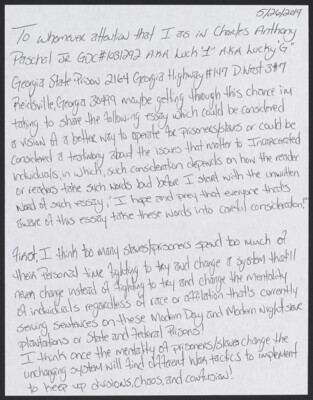 5/26/2019
To whomever attention that I as in Charles Anthony
Paschol JR GDC#1031292 A.K.A Luck "1" A.K.A Lucky "G"
Georgia State Prison 2164 Georgia Highway #147 D West 3#7
Reidsville, Georgia 30499 maybe getting through this chance im
taking to share the following essay which could be considered
a vision of a better way to operate for prisoners/slaves or could be
considered a testimony about the issues that matter to Incarcerated
individuals, in which, such consideration depends on how the reader
or readers take such words but before I start with the unwritten
word of such essay, "I hope and pray that everyone thats
aware of this essay take these words into careful consideration!"
First, I think too many slaves/prisoners spend too much of
their Personal time fighting to try and change a system that'll
never change instead of fighting to try and change the mentality
of individuals regardless of race or affiliation that's currently
serving sentences on these Modern Day and Modern Night slave
plantations or State and Federal Prisons!
I think once the mentality of prisoners/slaves change the
unchanging system will find different work tactics to implement
to keep up divisions, chaos, and confusion!